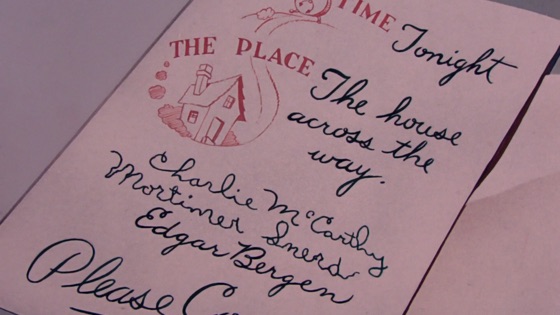 TIME Tonight
THE PLACE The house
across the
way.
Charlie McCarthy
Mortimer Snerd
Edgar Bergen
Please